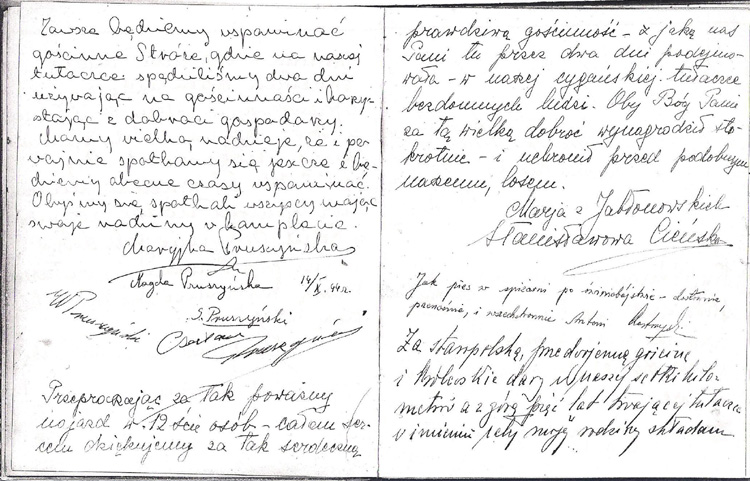 Zawsze będziemy wspominać
gościnne Stróże, gdzie na naszej
tułaczce spędziliśmy dwa dni
używając na gościnności i korzy-
stając z dobroci gospodarzy.
Mamy wielką nadzieję, że i po
wojnie spotkamy się jeszcze i bę-
dziemy obecne czasy wspominać.
Obyśmy się spotkali wszyscy mając
swoje rodziny w komplecie.
Maryjka Pruszyńska
Magda Pruszyńska 14/X. 44 r.
W Pruszyński
S. Pruszyński
Czesław
Przepraszając za tak poważny
najazd w 12-ście osób - całem ser-
cem dziękujemy za tak serdeczną
prawdziwą gościnność - z jaką nas
Pani tu przez dwa dni podejmo-
wała - w naszej cygańskiej tułaczce
bezdomnych ludzi. Oby Bóg Pani
za tą wielką dobroć wynagrodził sto-
krotnie - i uchronił przed podobnym
naszemu, losem.
Marja z Jabłonowskich
Stanisławowa Cieńska
Jak pies w spiżarni po
i wszechstronnie Antoni
Za staropolską, przedwojenną gościnę
i królewskie dary w naszej setki kilo-
metrów a z górą pięć lat trwającej tułaczce
w imieniu całej mojej rodziny składam